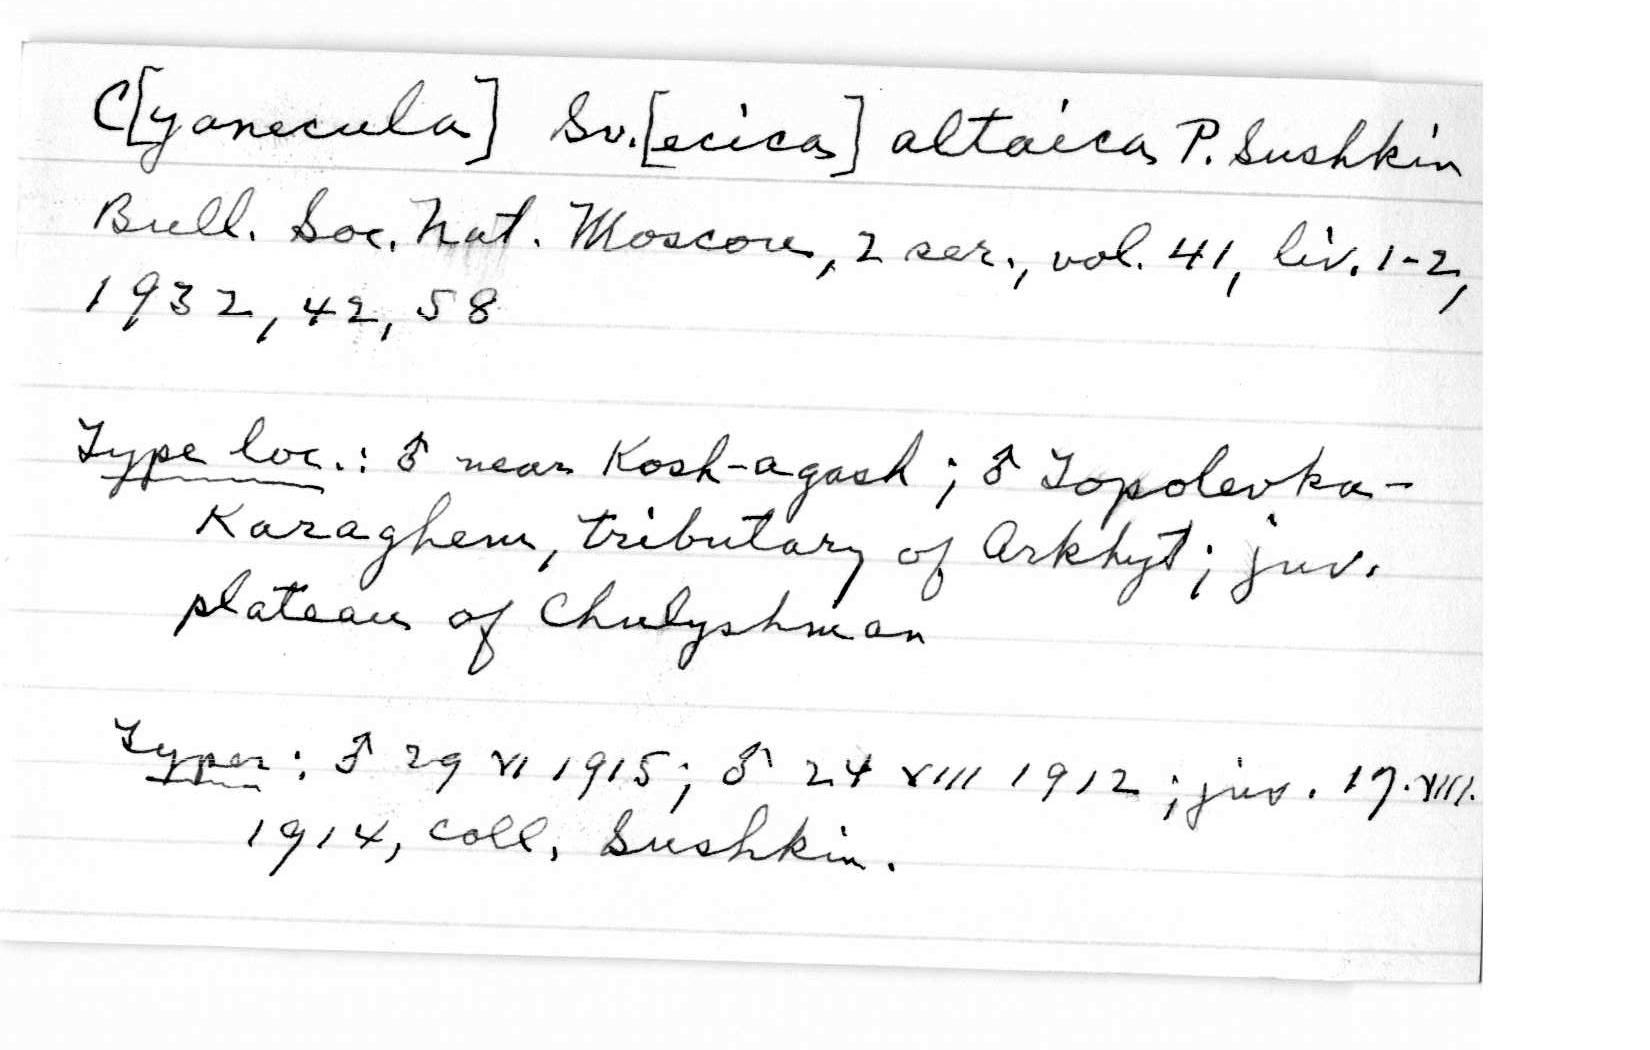 C[yanecula] Sv.[ecica] altaica P. Sushkin
Bull. Soc. Nat. Moscou, 2 ser., vol. 41, liv. 1-2,
1932, 42, 58
Type loc.: ♂ near Kosh-agash; ♂ Topolevka-
Karaghem, tributary of Arkhyt; juv.
plateau of Chulyshman
Types: ♂ 29 VI 1915; ♂ 24 VIII 1912; juv. 17.VIII.
1914, coll. Sushkin.